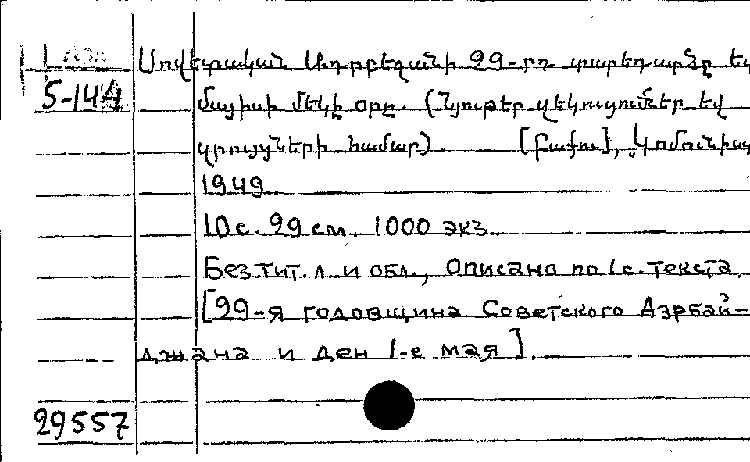 Սովետական Ադրբեջանի 29-րդ տարեդարձը եվ
5-144
մայիսի մեկի օրը. (Նյութեր զեկուցումներ եվ
զրույցների համար). [Բաքու],
1949
10 с. 29 см. 1000 экз.
Без тит. л. и обл., описано по 1с. текста.
[29-я годовщина Советского Азрбай-
джана и ден 1-е мая].
29557